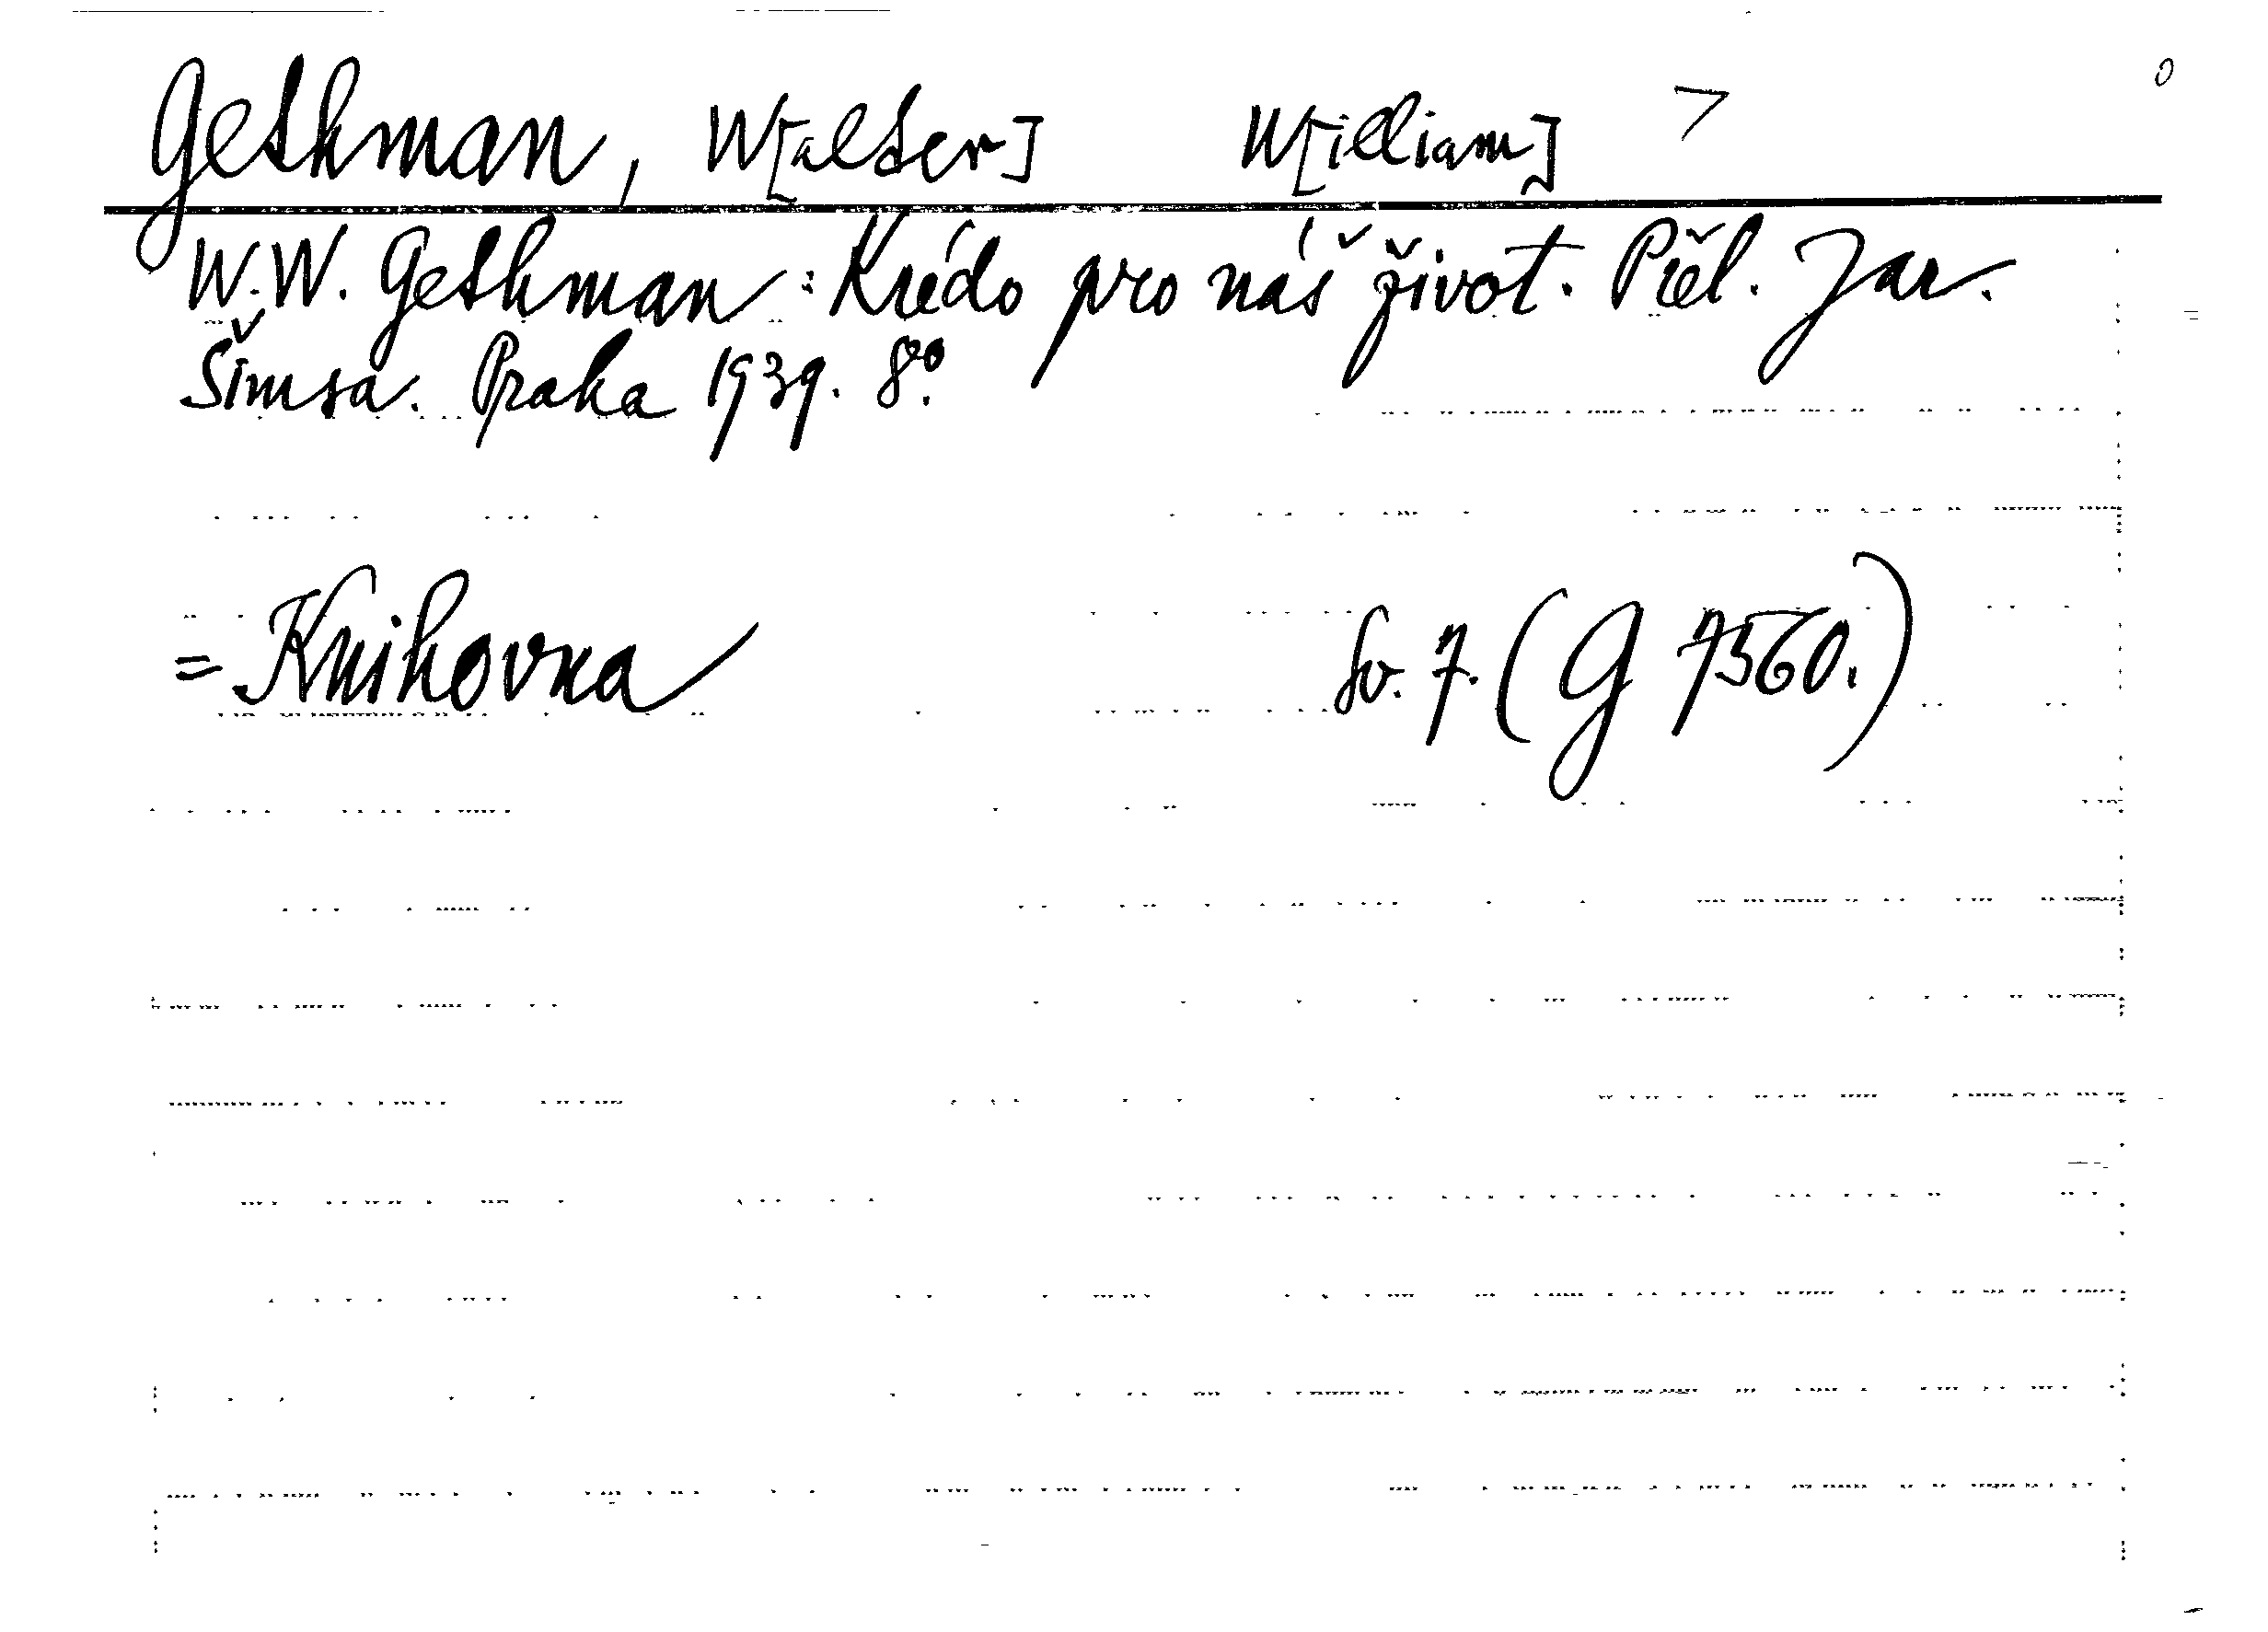 Gethman, W[alter] W[illiam]
W.W. Gethman: Krédo pro náš život. Přel. Jar.
Šimsa. Praha 1939. 8°.
= Knihovna Sv. 7. (G 7560.)